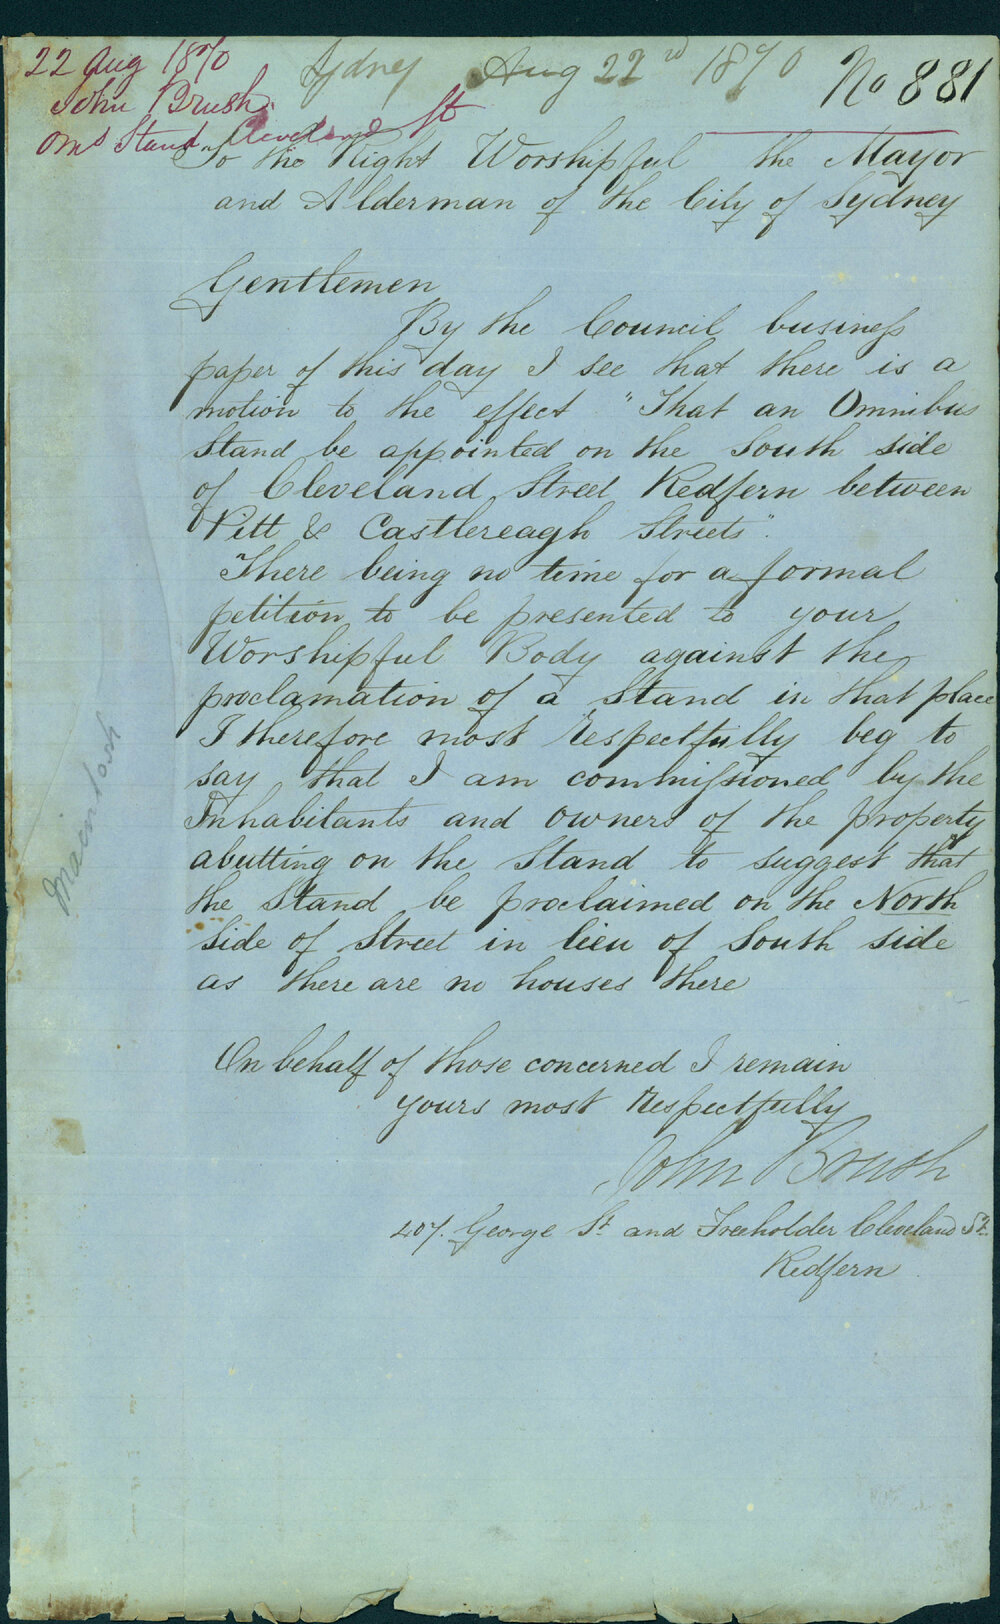 22 Aug 1870
John Brush
Oms Stand Cleveland St
Sydney Aug 22nd 1870
No 881
To the Right Worshipful the Mayor
and Alderman of the City of Sydney
Gentlemen
By the Council business
paper of this day I see that there is a
motion to the effect "That an Omnibus
Stand be appointed on the South side
of Cleveland Street Redfern between
Pitt & Castlereagh Streets".
There being no time for a formal
petition to be presented to your
Worshipful Body against the
proclamation of a Stand in that place
I therefore most respectfully beg to
say that I am commissioned by the
Inhabitants and owners of the property
abutting on the Stand to suggest that
the Stand be proclaimed on the North
Side of Street in lieu of South side
as there are no houses there
On behalf of those concerned I remain
yours most Respectfully
John Brush
407. George St and Freeholder Cleveland St.
Redfern
Macintosh